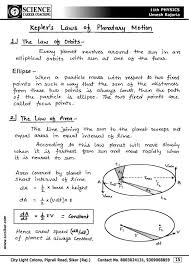 SCIENCE
CAREER COACHING
11th PHYSICS
Umesh Rajoria
Kepler's Laws of Planetary Motion
1.) The Law of Orbits -
Every planet revolves around the sun in an
elliptical orbits with sun at one of its foci.
Ellipse -
When a particle moves with respect to two fixed
points in such a way that the sum of the distances
from these two points is always constant, then the path
of the particle is ellipse. The two fixed points are
called focus.
2.) The Law of Area -
The line joining the sun to the planet sweeps equal
area in equal time. i.e. planet moves slowly
when it is farthest from sun and move rapidly
when it is nearest to sun.
Area covered by planet
in short interval of
time
= Constant
Hence areal speed (dA/dt)
of planet is always constant.
City Light Colony, Piprali Road, Sikar (Raj.)
15